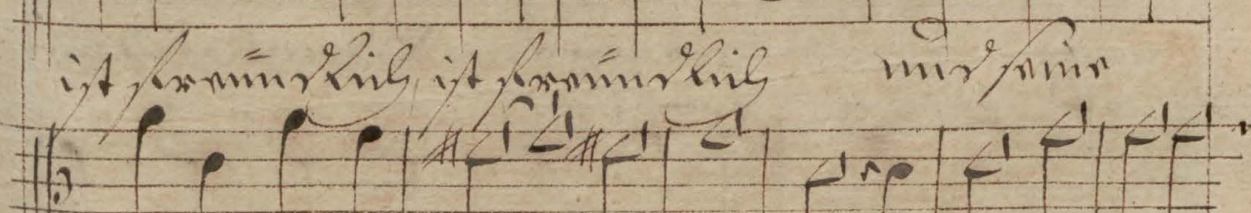 ist freündlich, ist freündlich und seine